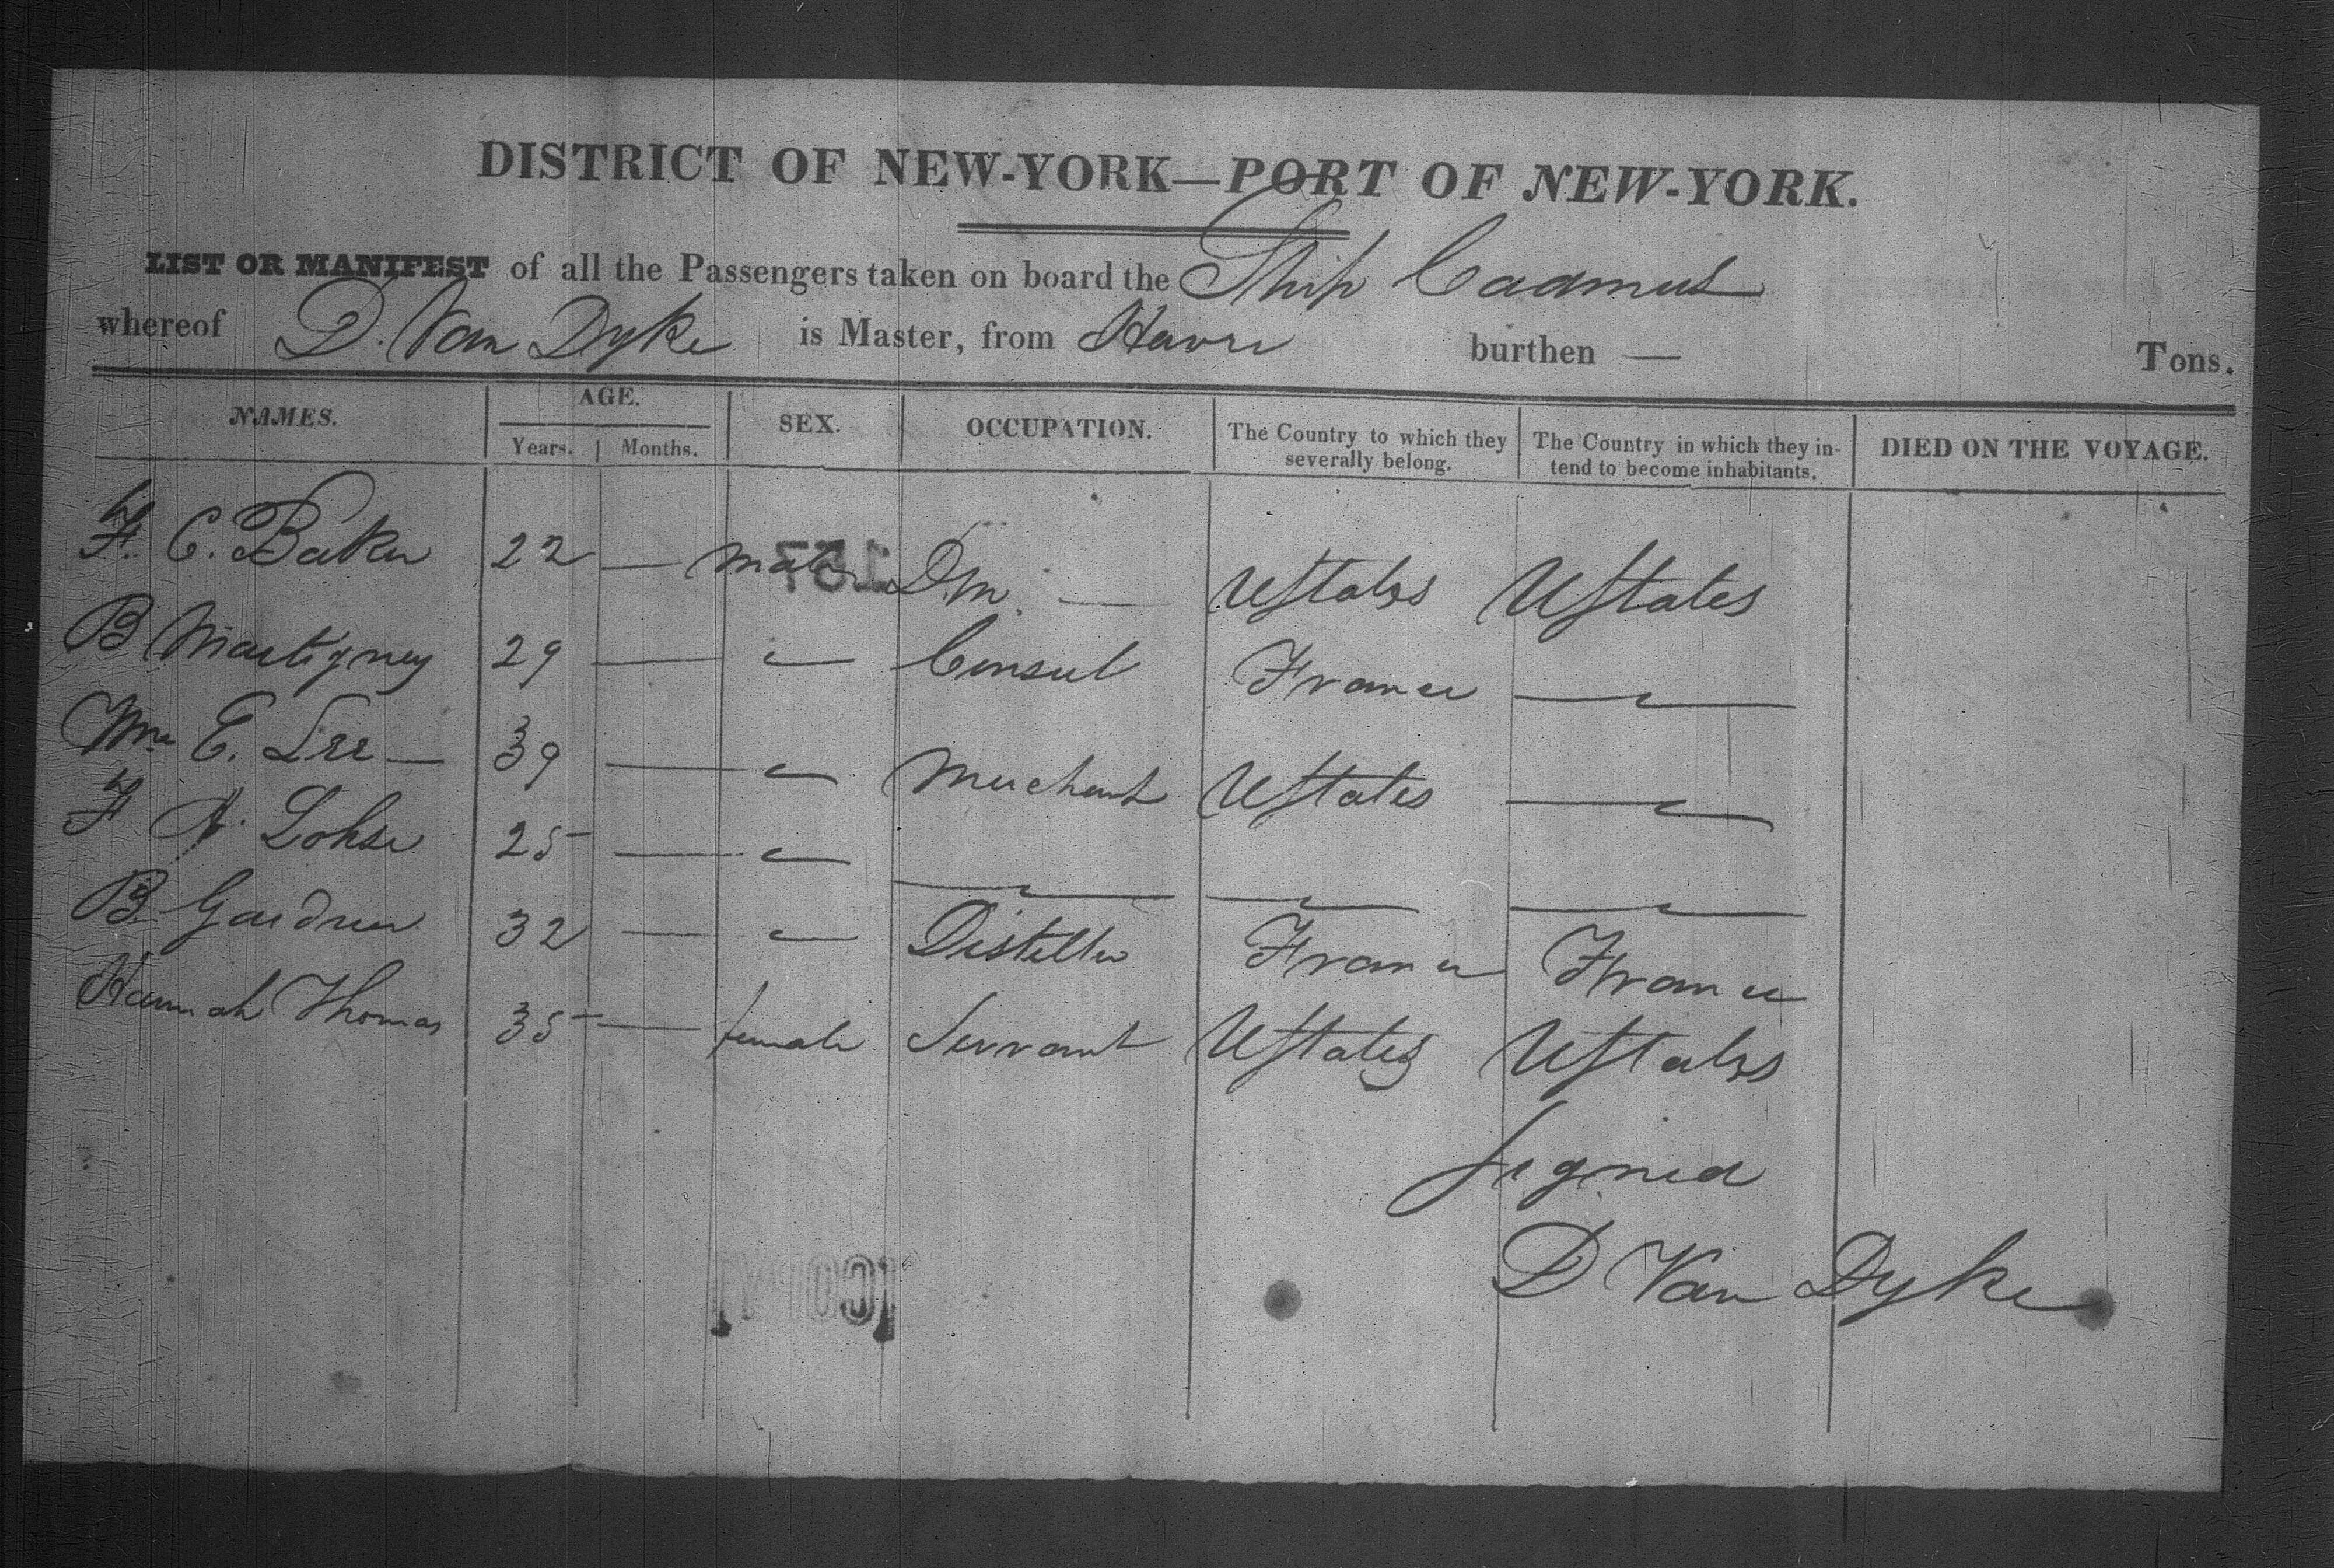 DISTRICT OF NEW-YORK—PORT OF NEW-YORK.
LIST OR MANIFEST of all the Passengers taken on board the Ship Cadmus
whereof D. Van Dyke is Master, from Havre burthen — Tons.
NAMES. AGE. Years. Months. SEX. OCCUPATION. The Country to which they severally belong. The Country in which they intend to become inhabitants. DIED ON THE VOYAGE.
F. C. Baker 22 — male D.M. — UStates UStates
B Martigney 29 — " Consul France "
Wm E. Lee — 39 — " Merchant UStates "
F A. Lohse 25 — " " " "
B. Gardner 32 — " Distiller France France
Hannah Thomas 35 — female Servant UStates UStates
Signed
D Van Dyke